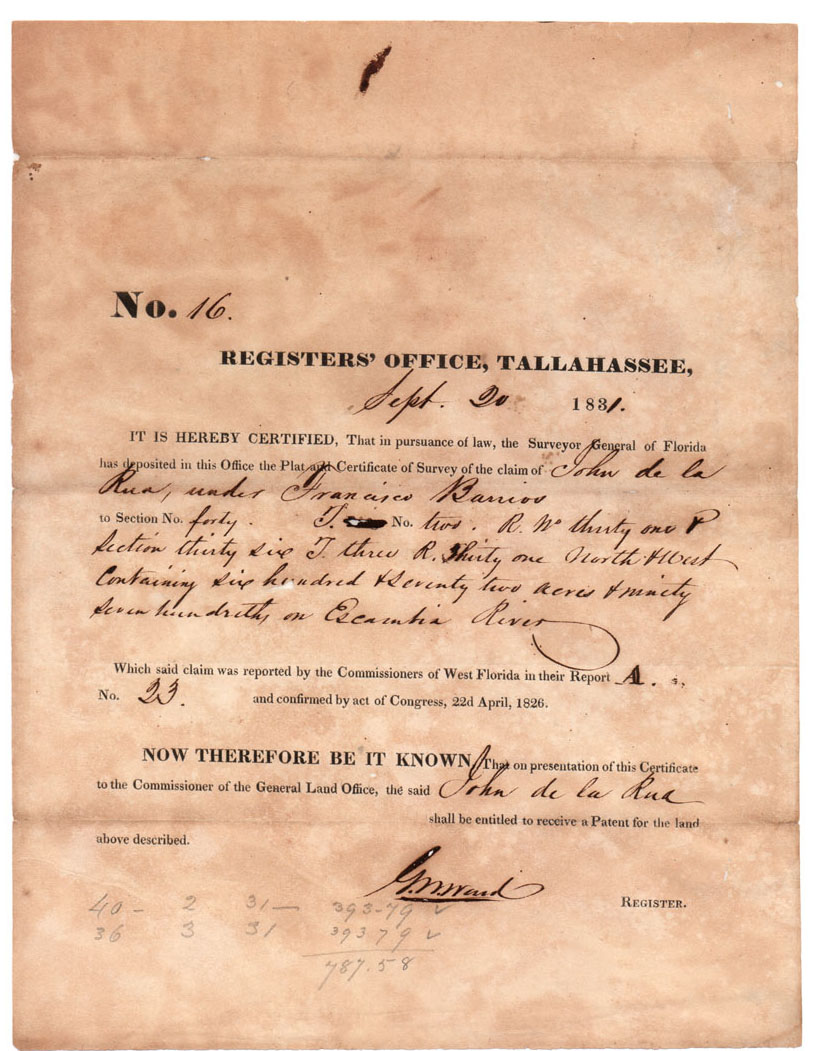 No. 16.
REGISTERS' OFFICE, TALLAHASSEE,
Sept. 20 1831.
IT IS HEREBY CERTIFIED, That in pursuance of law, the Surveyor General of Florida
has deposited in this Office the Plat and Certificate of Survey of the claim of John de la
Rua, under Francisco Barrios
to Section No. forty. T. No. two. R. No thirty one &
Section thirty six T. three R. Thirty one North & West
Containing six hundred & seventy two acres & ninety
seven hundreths, on Escambia River
Which said claim was reported by the Commissioners of West Florida in their Report A. s,
No. 23. and confirmed by act of Congress, 22d April, 1826.
NOW THEREFORE BE IT KNOWN, That on presentation of this Certificate
to the Commissioner of the General Land Office, the said John de la Rua
shall be entitled to receive a Patent for the land
above described.
G. W. Ward REGISTER.
40 - 2 31 - 393-79 ✓
36 3 31 393 79 ✓
787.58